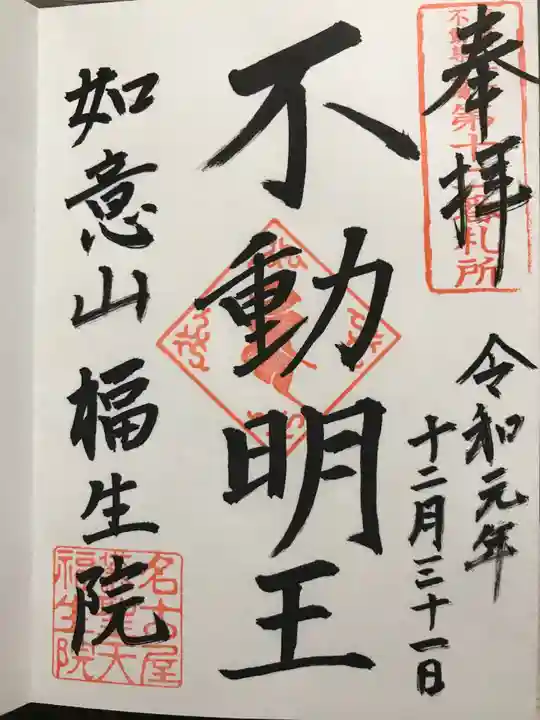 奉拝
第十二番札所
令和元年
十二月三十一日
不動明王
如意山 福生院
名古屋
福生院